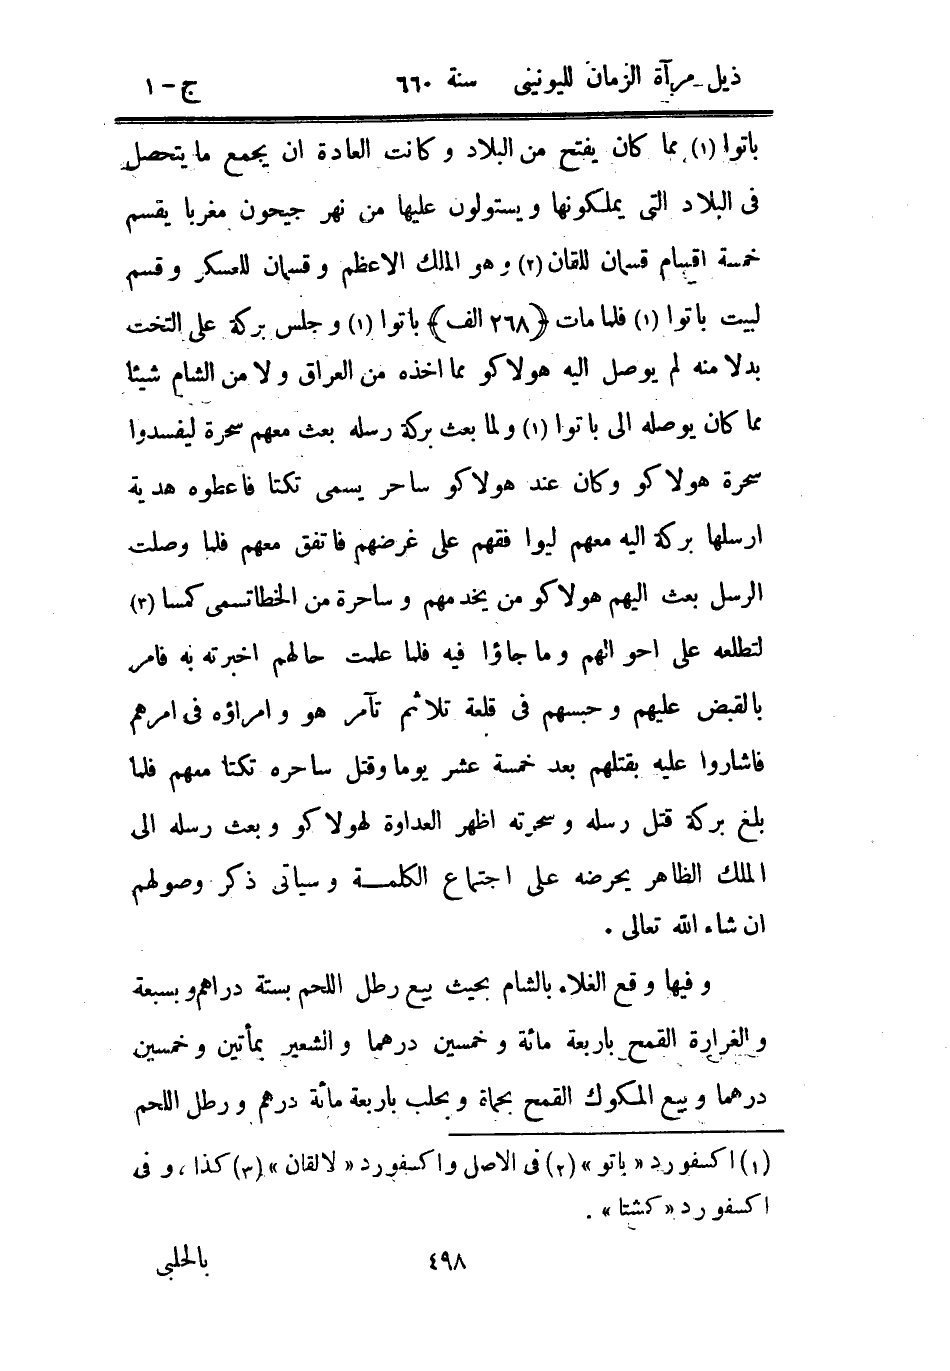 ذيل مرآة الزمان لليونينى سنة ٦٦٠ ج - ١
باتوا (١) مما كان يفتح من البلاد و كانت العادة ان يجمع ما يتحصل
فى البلاد التى يملكونها و يستولون عليها من نهر جيحون مغربا يقسم
خمسة اقسام قسمان للقان (٢) و هو الملك الاعظم و قسمان للعسكر و قسم
لبيت باتوا (١) فلما مات ﴿٢٦٨ الف﴾ باتوا (١) و جلس بركة على التخت
بدلا منه لم يوصل اليه هولاكو مما اخذه من العراق و لا من الشام شيئا
مما كان يوصله الى باتوا (١) و لما بعث بركة رسله بعث معهم سحرة ليفسدوا
سحرة هولاكو وكان عند هولاكو ساحر يسمى تكتا فاعطوه هدية
ارسلها بركة اليه معهم ليوا فقهم على غرضهم فاتفق معهم فلما وصلت
الرسل بعث اليهم هولاكو من يخدمهم و ساحرة من الخطا تسمى كمسا (٣)
لتطلعه على احوالهم و ما جاؤا فيه فلما علمت حالهم اخبرته به فامر
بالقبض عليهم و حبسهم فى قلعة تلا ثم تآمر هو و امراؤه فى امرهم
فاشاروا عليه بقتلهم بعد خمسة عشر يوما وقتل ساحره تكتا معهم فلما
بلغ بركة قتل رسله و سحرته اظهر العداوة لهولاكو و بعث رسله الى
الملك الظاهر يحرضه على اجتماع الكلمة و سياتى ذكر وصولهم
ان شاء الله تعالى .
و فيها وقع الغلاء بالشام بحيث بيع رطل اللحم بستة دراهم و بسبعة
و الغرارة القمح باربعة مائة و خمسين درهما و الشعير بمأتين و خمسين
درهما و بيع المكوك القمح بحماة و بحلب باربعة مائة درهم و رطل اللحم
(١) اكسفورد « باتو » (٢) فى الاصل و اكسفورد « لالقان » (٣) كذا ، و فى
اكسفورد « كشتا » .
٤٩٨ بالحلبى